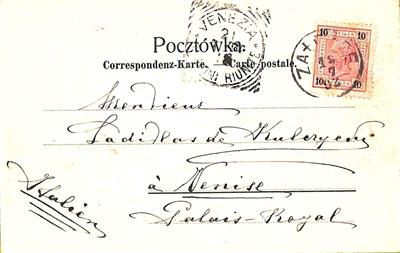 Pocztówka.
Correspondenz-Karte. Carte postale.
VENEZIA
10 10
10 10
Monsieur
Ladislas de Kulczycki
à Venise
Palais-Royal
Italien